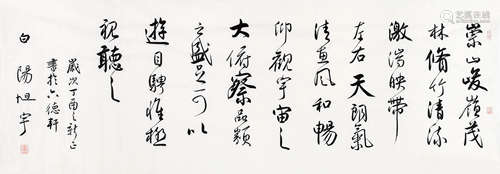 崇山峻嶺茂
林脩竹清流
激湍映帶
左右天朗氣
清惠風和暢
仰觀宇宙之
大俯察品類
之盛足可以
遊目騁懷極
視聽之
歲次丁酉之新正
書於六德軒
白陽旭宇